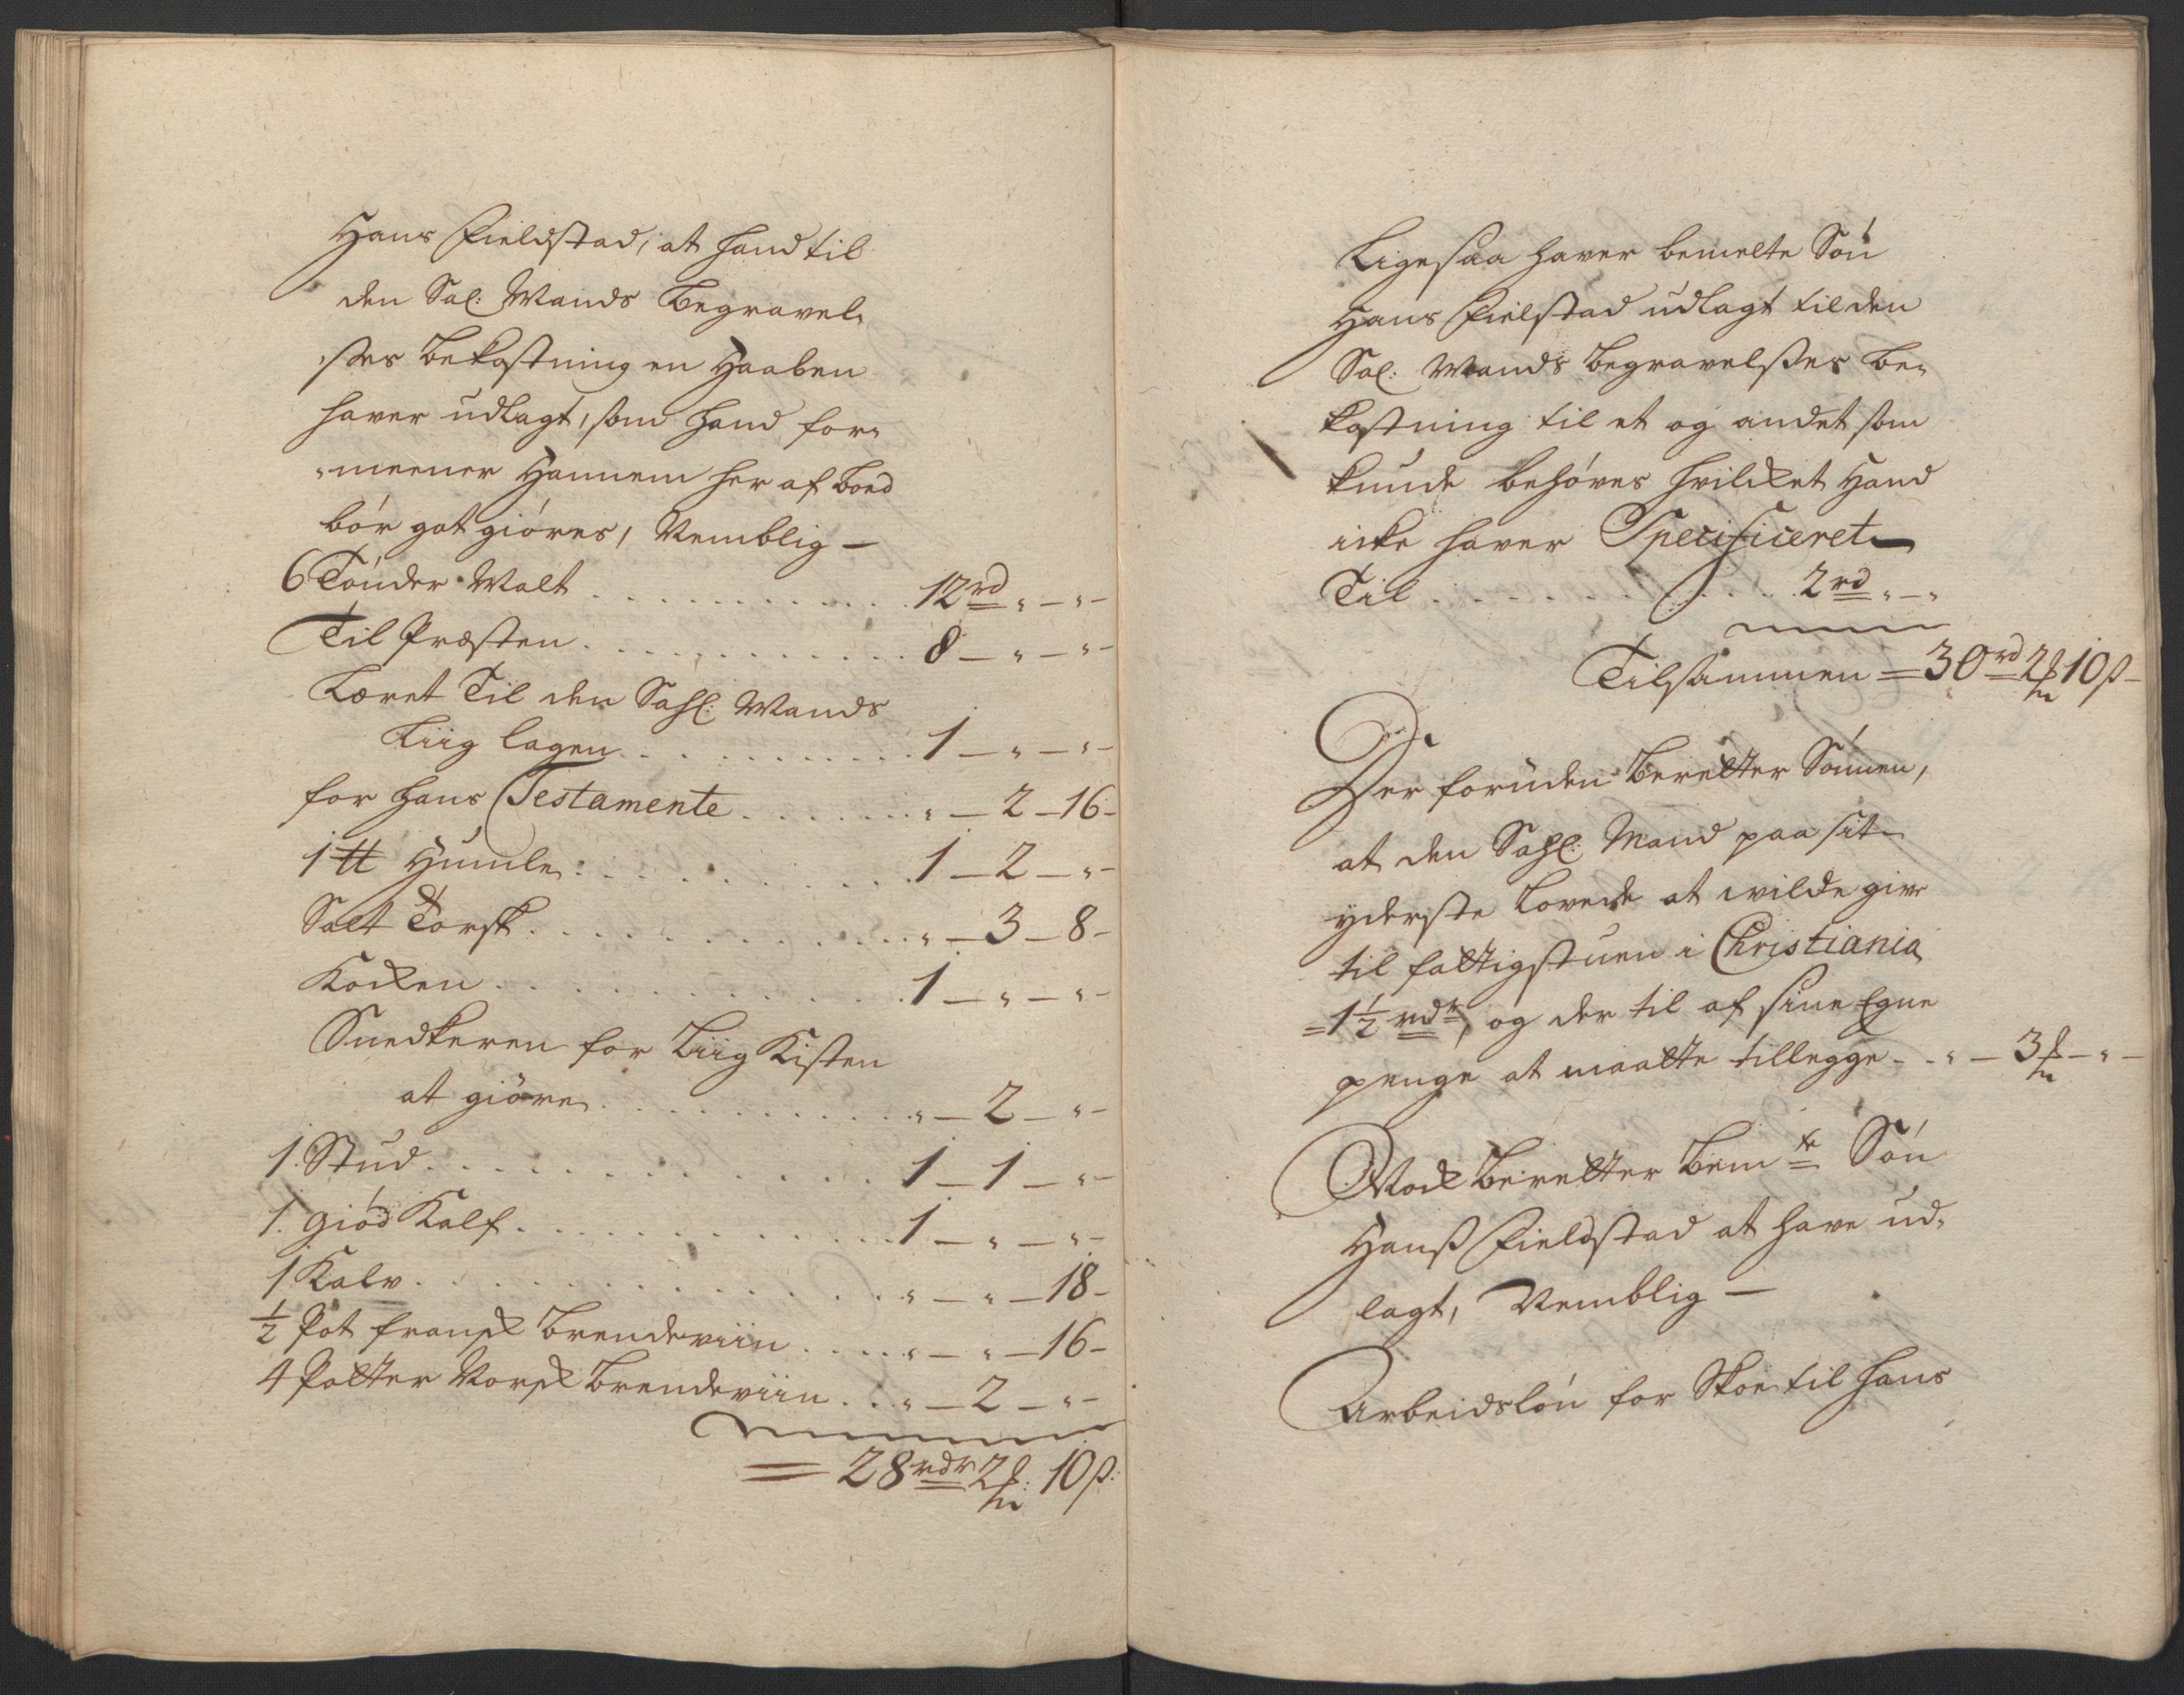 Hans Fieldstad, at hand til
den Sal: Mands Begravel-
-ses bekostning en Haaben
haver udlagt, som hand for-
-meener Hannem her af Boed
bør got giøres, Nemblig -
6 Tønder Malt . . . . . . . . 12 rd " - " -
Til Præsten . . . . . . . . 8 - " - " -
Læret Til den Sahl: Mands
Liig lagen . . . . . . . . 1 - " - " -
for hans Testamente . . . . . . " - 2 - 16 -
1 tt Humle . . . . . . . . 1 - 2 - " -
Salt Torsk . . . . . . . . " - 3 - 8 -
Kocken . . . . . . . . 1 - " - " -
Snedkeren for Liig Kisten
at giøre . . . . . . . . " - 2 - " -
1 Stud . . . . . . . . 1 - 1 - " -
1 giød Kalf . . . . . . . . 1 - " - " -
1 Kalv . . . . . . . . " - " - 18 -
½ Pot fransk brendeviin . . . . " - " - 16 -
4 Potter Norsk brendeviin . . . " - 2 - " -
= 28 rdr 2 ß: 10 ß:
Ligesaa haver bemelte Søn
Hans Fielstad udlagt til den
Sal: Mands Begravelses be-
kostning til et og andet som
kunde behøves hvilcket Hand
icke haver Specificeret -
Til . . . . . . . . 2 rd " - "
Tilsammen = 30 rd 2 10 ß -
Der foruden beretter Sønnen,
at den Sahl: Mand paa sit -
yderste lovede at wilde give
til fattigstuen i Christiania
= 1½ rdr, og der til af sine Egne
penge at maatte tillegge - - " - 3 - " -
Nock beretter bemte Søn
Hanß Fieldstad at have ud-
lagt, Nemblig -
Arbeidsløn for Skoe til hans